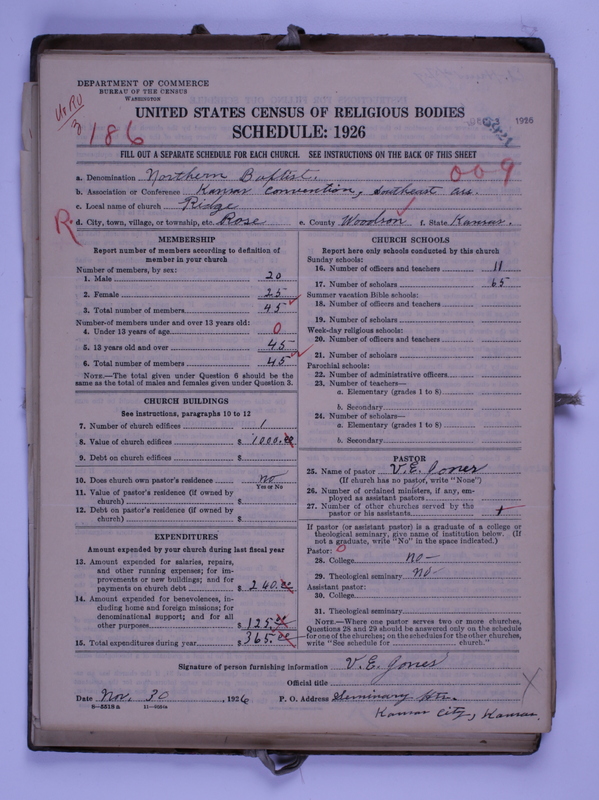 DEPARTMENT OF COMMERCE
BUREAU OF THE CENSUS
WASHINGTON
186
UNITED STATES CENSUS OF RELIGIOUS BODIES
1926
SCHEDULE: 1926
FILL OUT A SEPARATE SCHEDULE FOR EACH CHURCH. SEE INSTRUCTIONS ON THE BACK OF THIS SHEET
009
a. Denomination Northern Baptist.
b. Association or Conference Kansas Convention, Southeast Ass.
c. Local name of church Ridge
R
d. City, town, village, or township, etc. Rose e. County Woodson f. State Kansas.
MEMBERSHIP
Report number of members according to definition of
member in your church
Number of members, by sex:
1. Male 20
2. Female 25
3. Total number of members 45
Number of members under and over 13 years old:
4. Under 13 years of age 0
5. 13 years old and over 45
6. Total number of members 45
NOTE.—The total given under Question 6 should be the
same as the total of males and females given under Question 3.
CHURCH BUILDINGS
See instructions, paragraphs 10 to 12
7. Number of church edifices 1
8. Value of church edifices $ 1000.00
9. Debt on church edifices $
10. Does church own pastor's residence no
Yes or No
11. Value of pastor's residence (if owned by
church) $
12. Debt on pastor's residence (if owned by
church) $
EXPENDITURES
Amount expended by your church during last fiscal year
13. Amount expended for salaries, repairs,
and other running expenses; for im-
provements or new buildings; and for
payments on church debt $ 240.00
14. Amount expended for benevolences, in-
cluding home and foreign missions; for
denominational support; and for all
other purposes $ 125.00
15. Total expenditures during year $ 365.00
CHURCH SCHOOLS
Report here only schools conducted by this church
Sunday schools:
16. Number of officers and teachers 11
17. Number of scholars 65
Summer vacation Bible schools:
18. Number of officers and teachers
19. Number of scholars
Week-day religious schools:
20. Number of officers and teachers
21. Number of scholars
Parochial schools:
22. Number of administrative officers
23. Number of teachers—
a. Elementary (grades 1 to 8)
b. Secondary
24. Number of scholars—
a. Elementary (grades 1 to 8)
b. Secondary
PASTOR
25. Name of pastor V. E. Jones
(If church has no pastor, write "None")
26. Number of ordained ministers, if any, em-
ployed as assistant pastors
27. Number of other churches served by the
pastor or his assistants
If pastor (or assistant pastor) is a graduate of a college or
theological seminary, give name of institution below. (If
not a graduate, write "No" in the space indicated.)
Pastor: 0
28. College no—
29. Theological seminary no—
Assistant pastor:
30. College
31. Theological seminary
NOTE.—Where one pastor serves two or more churches,
Questions 28 and 29 should be answered only on the schedule
for one of the churches; on the schedules for the other churches,
write "See schedule for church."
Signature of person furnishing information V. E. Jones
Official title
Date Nov. 30, 1926 P. O. Address Seminary
8—5518a
Kansas City, Kansas.